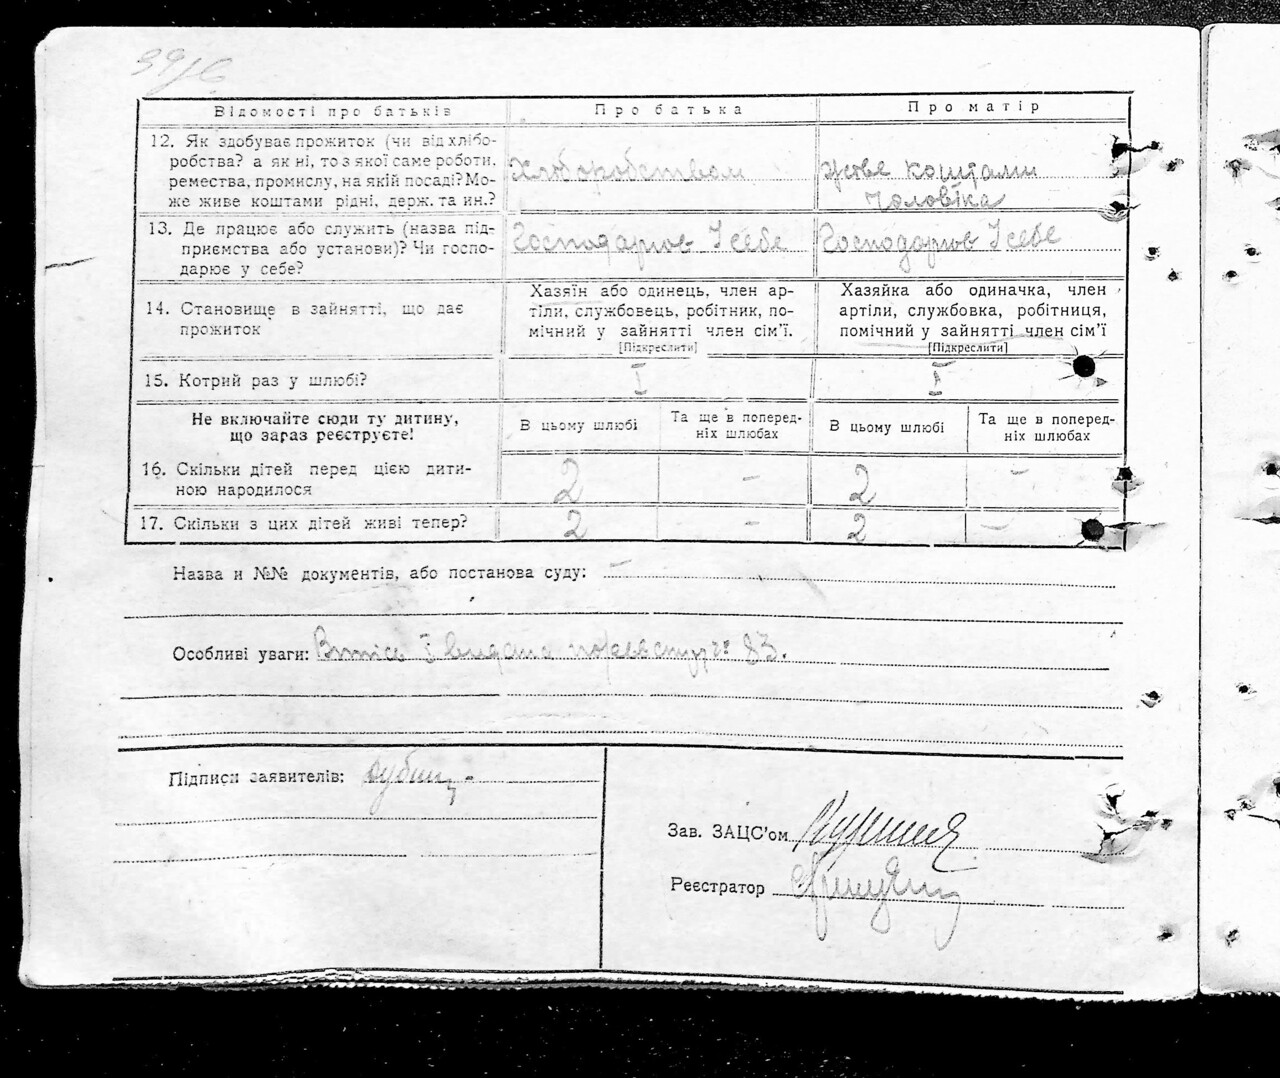 Відомості про батьків
Про батька
Про матір
12. Як здобуває прожиток (чи від хлібо-
робства? а як ні, то з якої саме роботи,
ремества, промислу, на якій посаді? Мо-
же живе коштами рідні, держ. та ин.?
Хліборобством
живе коштами
чоловіка
13. Де працює або служить (назва під-
приємства або установи)? Чи госпо-
дарює у себе?
Господарює У себе
Господарює У себе
14. Становище в зайнятті, що дає
прожиток
Хазяїн або одинець, член ар-
тіли, службовець, робітник, по-
мічний у зайнятті член сім’ї.
[Підкреслити]
Хазяйка або одиначка, член
артіли, службовка, робітниця,
помічний у зайнятті член сім’ї
[Підкреслити]
15. Котрий раз у шлюбі?
I
I
Не включайте сюди ту дитину,
що зараз реєструєте!
В цьому шлюбі
Та ще в поперед-
ніх шлюбах
В цьому шлюбі
Та ще в поперед-
ніх шлюбах
16. Скільки дітей перед цією дити-
ною народилося
2 - 2 -
17. Скільки з цих дітей живі тепер?
2 - 2 -
Назва и №№ документів, або постанова суду: -
Особливі уваги: видана 83.
Підписи заявителів:
Зав. ЗАЦС’ом
Реєстратор